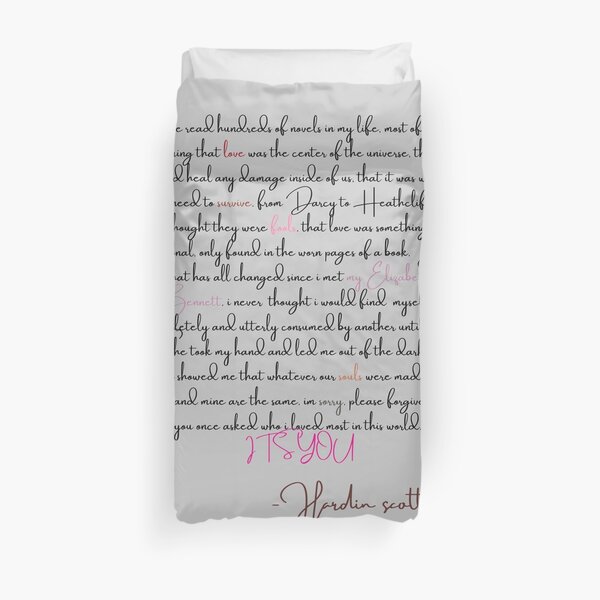 e read hundreds of novels in my life, most of
ing that love was the center of the universe, th
d heal any damage inside of us, that it was w
need to survive. from Darcy to Heathclif
hought they were fools, that love was something
nal, only found in the worn pages of a book.
at has all changed since i met my Elizabe
Bennett, i never thought i would find myse
letely and utterly consumed by another unti
he took my hand and led me out of the dark
showed me that whatever our souls were made
and mine are the same. im sorry, please forgive
you once asked who i loved most in this world.
ITS YOU
-Hardin scott